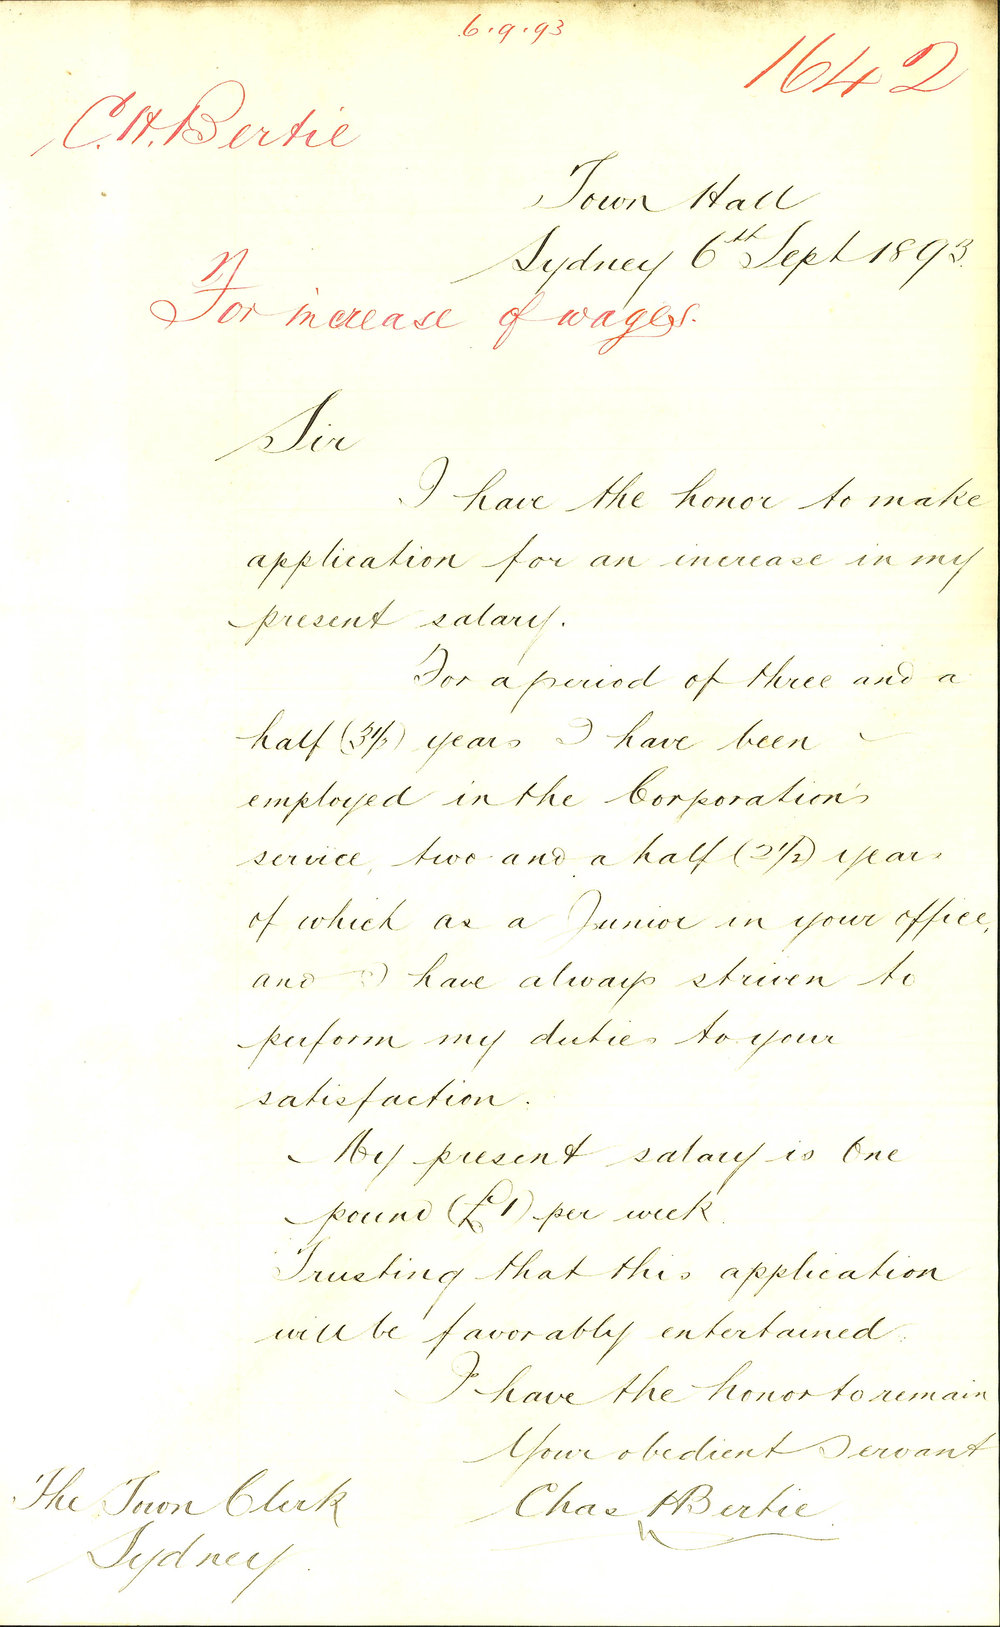 6.9.93
1642
C.H. Bertie
Town Hall
Sydney 6th Sept 1893.
For increase of wages.
Sir
I have the honor to make
application for an increase in my
present salary.
For a period of three and a
half (3½) years I have been
employed in the Corporation's
service, two and a half (2½) years
of which as a Junior in your office,
and I have always striven to
perform my duties to your
satisfaction.
My present salary is One
pound (£1) per week.
Trusting that this application
will be favorably entertained.
I have the honor to remain
Your obedient Servant
Chas H Bertie.
The Town Clerk
Sydney.